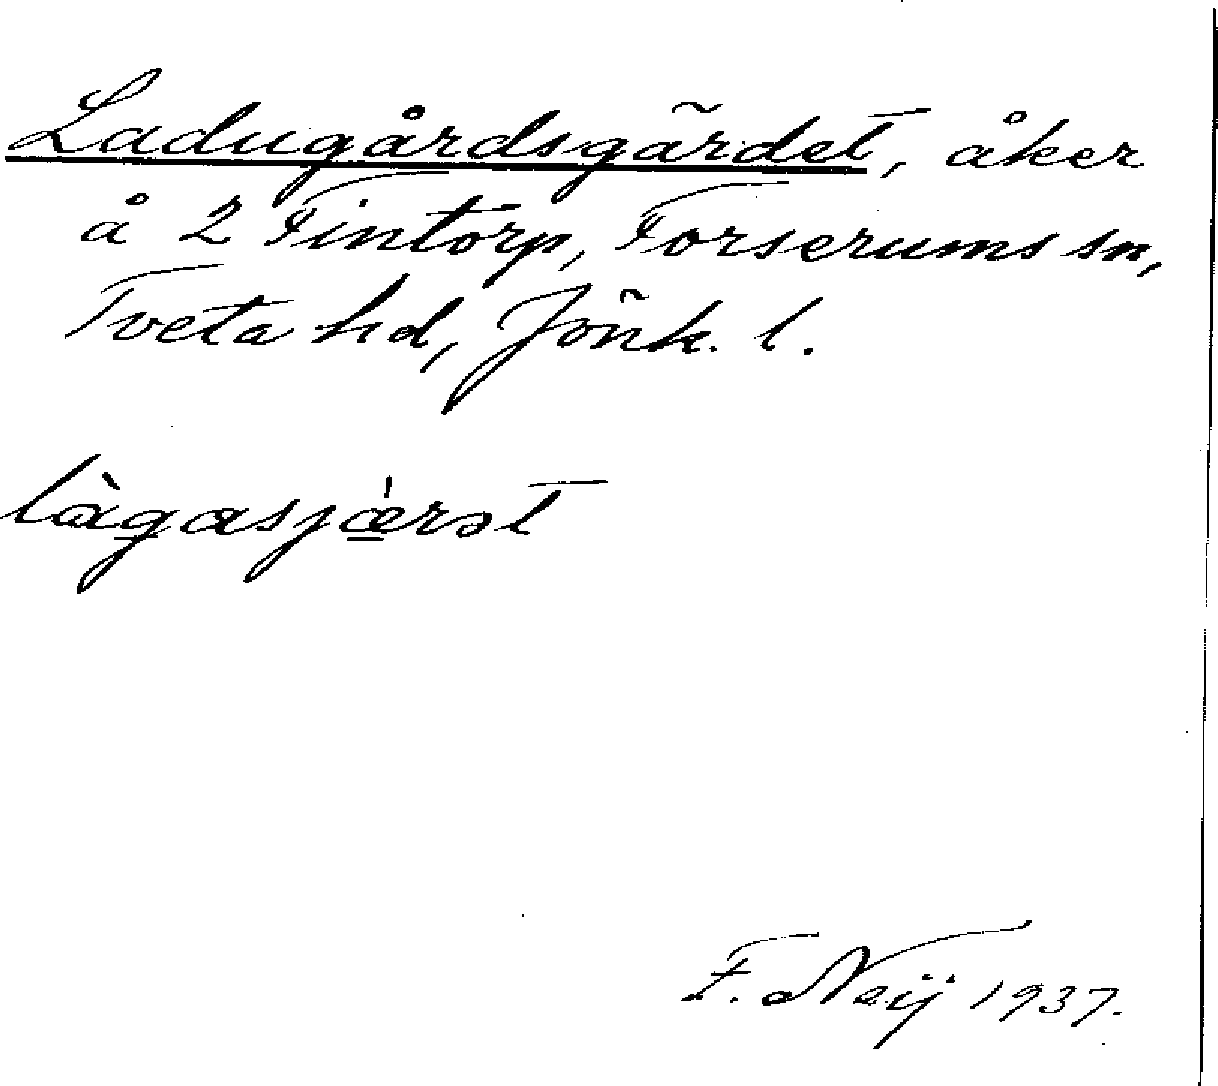 Ladugårdsgärdet, åker
å 2 Fintorp, Forserums sn,
Tveta hd, Jönk. l.
làgasjæ̀rət
F. Neij 1937.